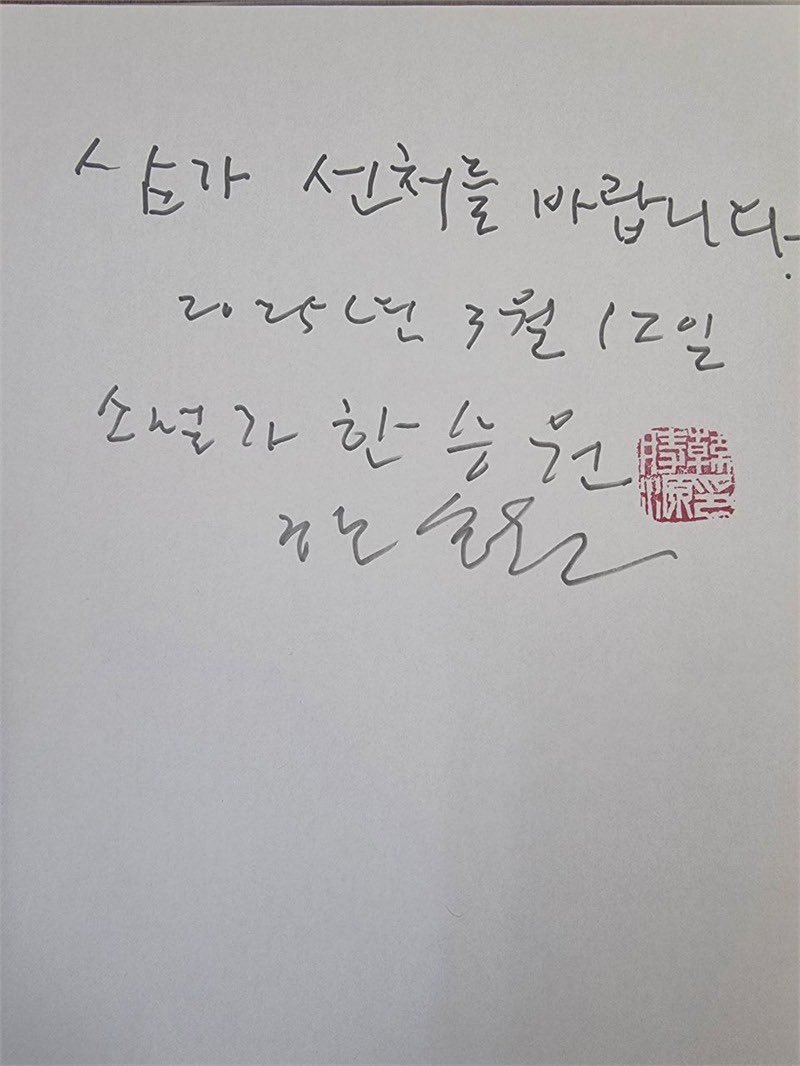 삼가 선처를 바랍니다.
2025년 3월 12일
소설가 한승원
한승원